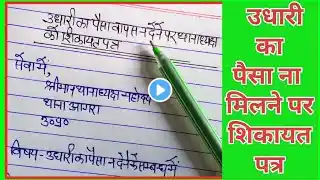 उधारी का पैसा वापस न देने पर थानाध्यक्ष
को शिकायत पत्र
सेवा में,
श्रीमान थानाध्यक्ष महोदय
थाना आगरा
उ०प्र०
विषय - उधारी का पैसा न देने के सम्बन्ध में
उधारी
का
पैसा ना
मिलने पर
शिकायत
पत्र